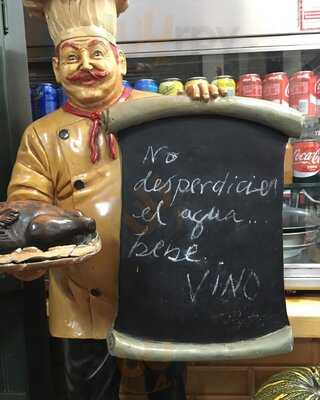 No
desperdicien
el agua...
bebe..
VINO
Coca-Cola